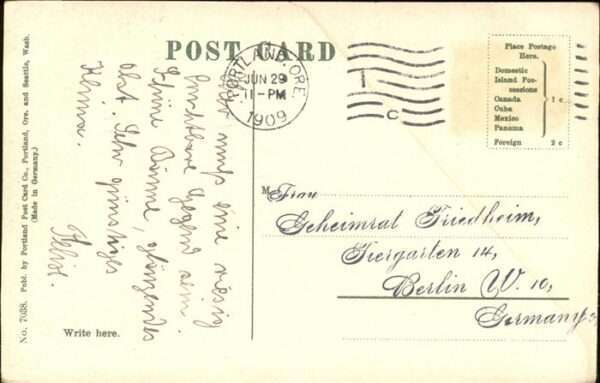 POST CARD
PORTLAND, ORE.
JUN 29
11-PM
1909
C
Place Postage
Here.
Domestic
Island Pos-
sessions
Canada
Cuba
Mexico
Panama
1 c
Foreign 2 c
muß eine riesig
fruchtbare Gegend sein.
Schöne Bäume, glänzendes
Obst. Sehr günstiges
Klima.
Felix.
M
Frau
Geheimrat Friedheim,
Tiergarten 14,
Berlin W. 10,
Germany.
Write here.
No. 7038. Publ. by Portland Post Card Co., Portland, Ore. and Seattle, Wash.
(Made in Germany.)